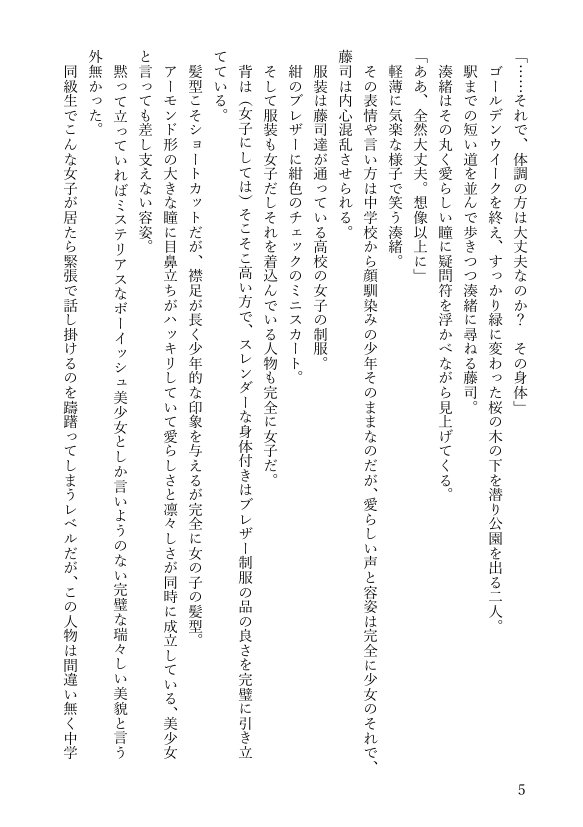 「……それで、体調の方は大丈夫なのか？　その身体」
ゴールデンウイークを終え、すっかり緑に変わった桜の木の下を潜り公園を出る二人。
駅までの短い道を並んで歩きつつ湊緒に尋ねる藤司。
湊緒はその丸く愛らしい瞳に疑問符を浮かべながら見上げてくる。
「ああ、全然大丈夫。想像以上に」
軽薄に気楽な様子で笑う湊緒。
その表情や言い方は中学校から顔馴染みの少年そのままなのだが、愛らしい声と容姿は完全に少女のそれで、
藤司は内心混乱させられる。
服装は藤司達が通っている高校の女子の制服。
紺のブレザーに紺色のチェックのミニスカート。
そして服装も女子だしそれを着込んでいる人物も完全に女子だ。
背は（女子にしては）そこそこ高い方で、スレンダーな身体付きはブレザー制服の品の良さを完璧に引き立
てている。
髪型こそショートカットだが、襟足が長く少年的な印象を与えるが完全に女の子の髪型。
アーモンド形の大きな瞳に目鼻立ちがハッキリしていて愛らしさと凛々しさが同時に成立している、美少女
と言っても差し支えない容姿。
黙って立っていればミステリアスなボーイッシュ美少女としか言いようのない完璧な瑞々しい美貌と言う
外無かった。
同級生でこんな女子が居たら緊張で話し掛けるのを躊躇ってしまうレベルだが、この人物は間違い無く中学
5